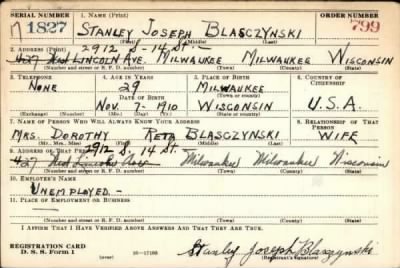 SERIAL NUMBER 1. NAME (Print) ORDER NUMBER
1827 STANLEY JOSEPH BLASCZYNSKI 799
(First) (Middle) (Last)
2912 S-14 St.
2. ADDRESS (Print)
427 LINCOLN AVE. MILWAUKEE MILWAUKEE WISCONSIN
(Number and street or R. F. D. number) (Town) (County) (State)
3. TELEPHONE 4. AGE IN YEARS 5. PLACE OF BIRTH 6. COUNTRY OF CITIZENSHIP
NONE 29 MILWAUKEE
(Town or county)
DATE OF BIRTH
NOV. 7-1910 WISCONSIN U.S.A.
(Exchange) (Number) (Mo.) (Day) (Yr.) (State or country)
7. NAME OF PERSON WHO WILL ALWAYS KNOW YOUR ADDRESS 8. RELATIONSHIP OF THAT PERSON
MRS. DOROTHY RETA BLASCZYNSKI WIFE
(Mr., Mrs., Miss) (First) (Middle) (Last)
2912 S. 14 St.
9. ADDRESS OF THAT PERSON
427 Lincoln Ave Milwaukee Milwaukee Wisconsin
(Number and street or R. F. D. number) (Town) (County) (State)
10. EMPLOYER'S NAME
UNEMPLOYED.-
11. PLACE OF EMPLOYMENT OR BUSINESS
(Number and street or R. F. D. number) (Town) (County) (State)
I AFFIRM THAT I HAVE VERIFIED ABOVE ANSWERS AND THAT THEY ARE TRUE.
REGISTRATION CARD
D. S. S. Form 1 (over) 16-17105 Stanley Joseph Blasczynski
(Registrant's signature)